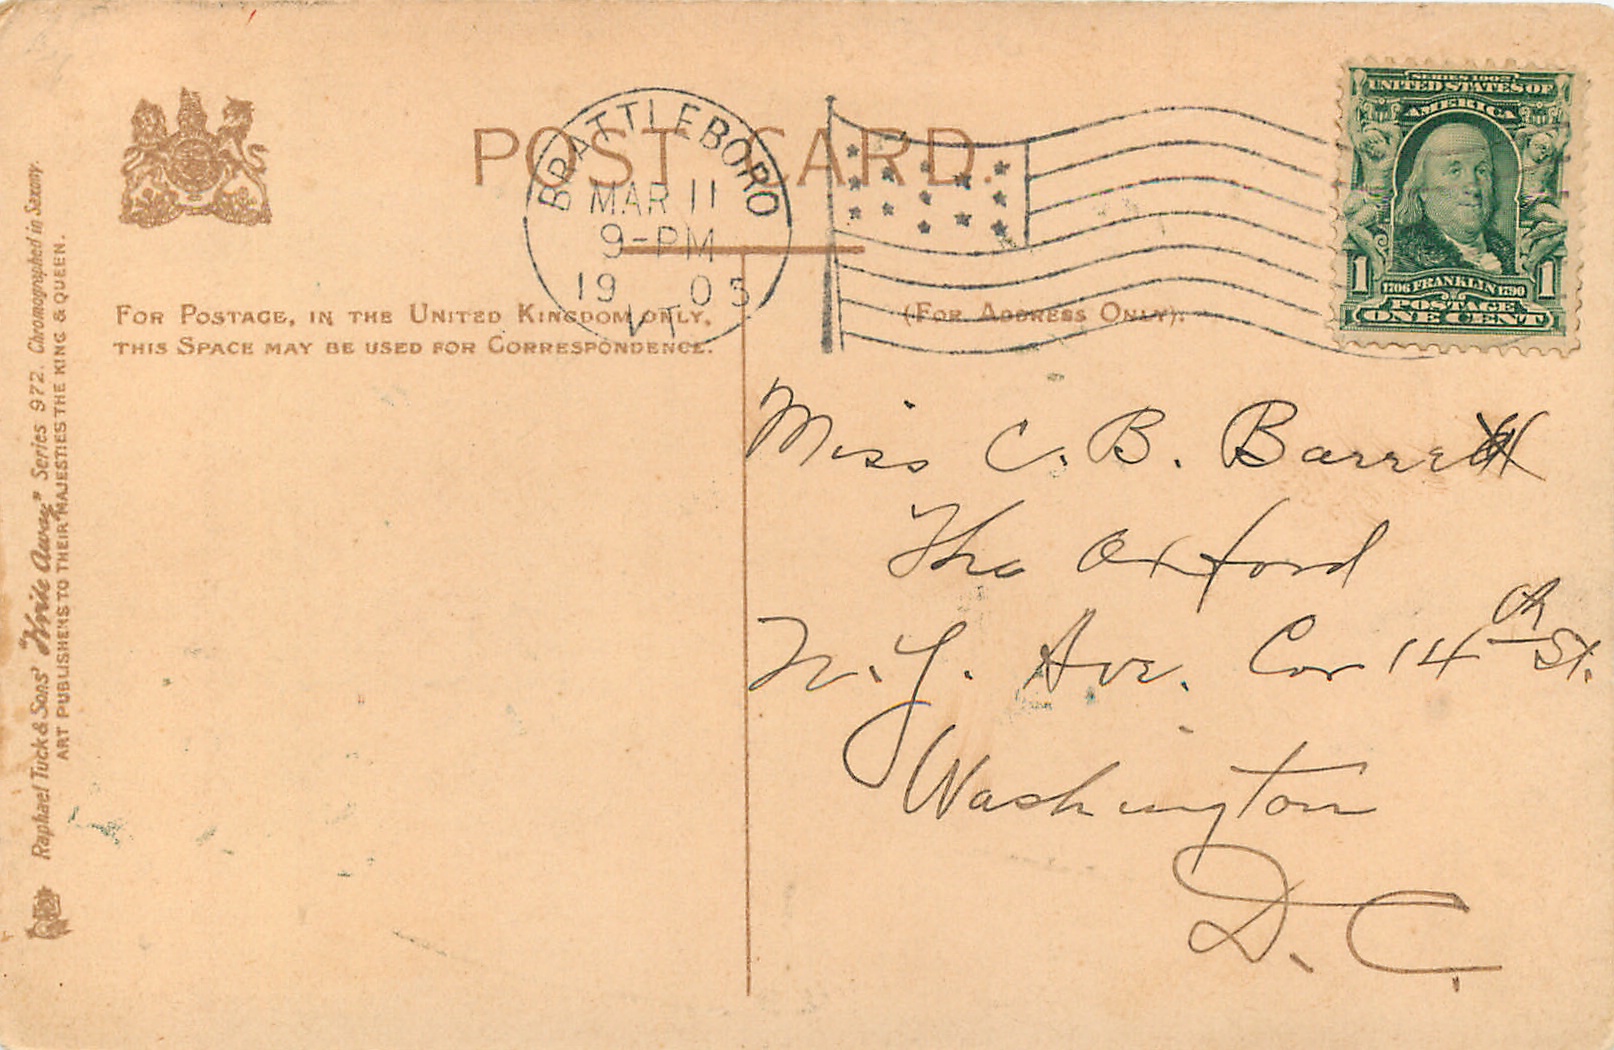 POST CARD.
BRATTLEBORO
MAR 11
9-PM
1905
VT.
SERIES 1902
UNITED STATES OF
AMERICA
1706 FRANKLIN 1790
1 1
POSTAGE
ONE CENT
FOR POSTAGE, IN THE UNITED KINGDOM ONLY,
THIS SPACE MAY BE USED FOR CORRESPONDENCE.
(FOR ADDRESS ONLY).
Raphael Tuck & Sons' "Write Away" Series 972. Chromographed in Saxony.
ART PUBLISHERS TO THEIR MAJESTIES THE KING & QUEEN.
Miss C. B. Barrett
The Oxford
N. Y. Ave. Cor 14th St.
Washington
D. C.